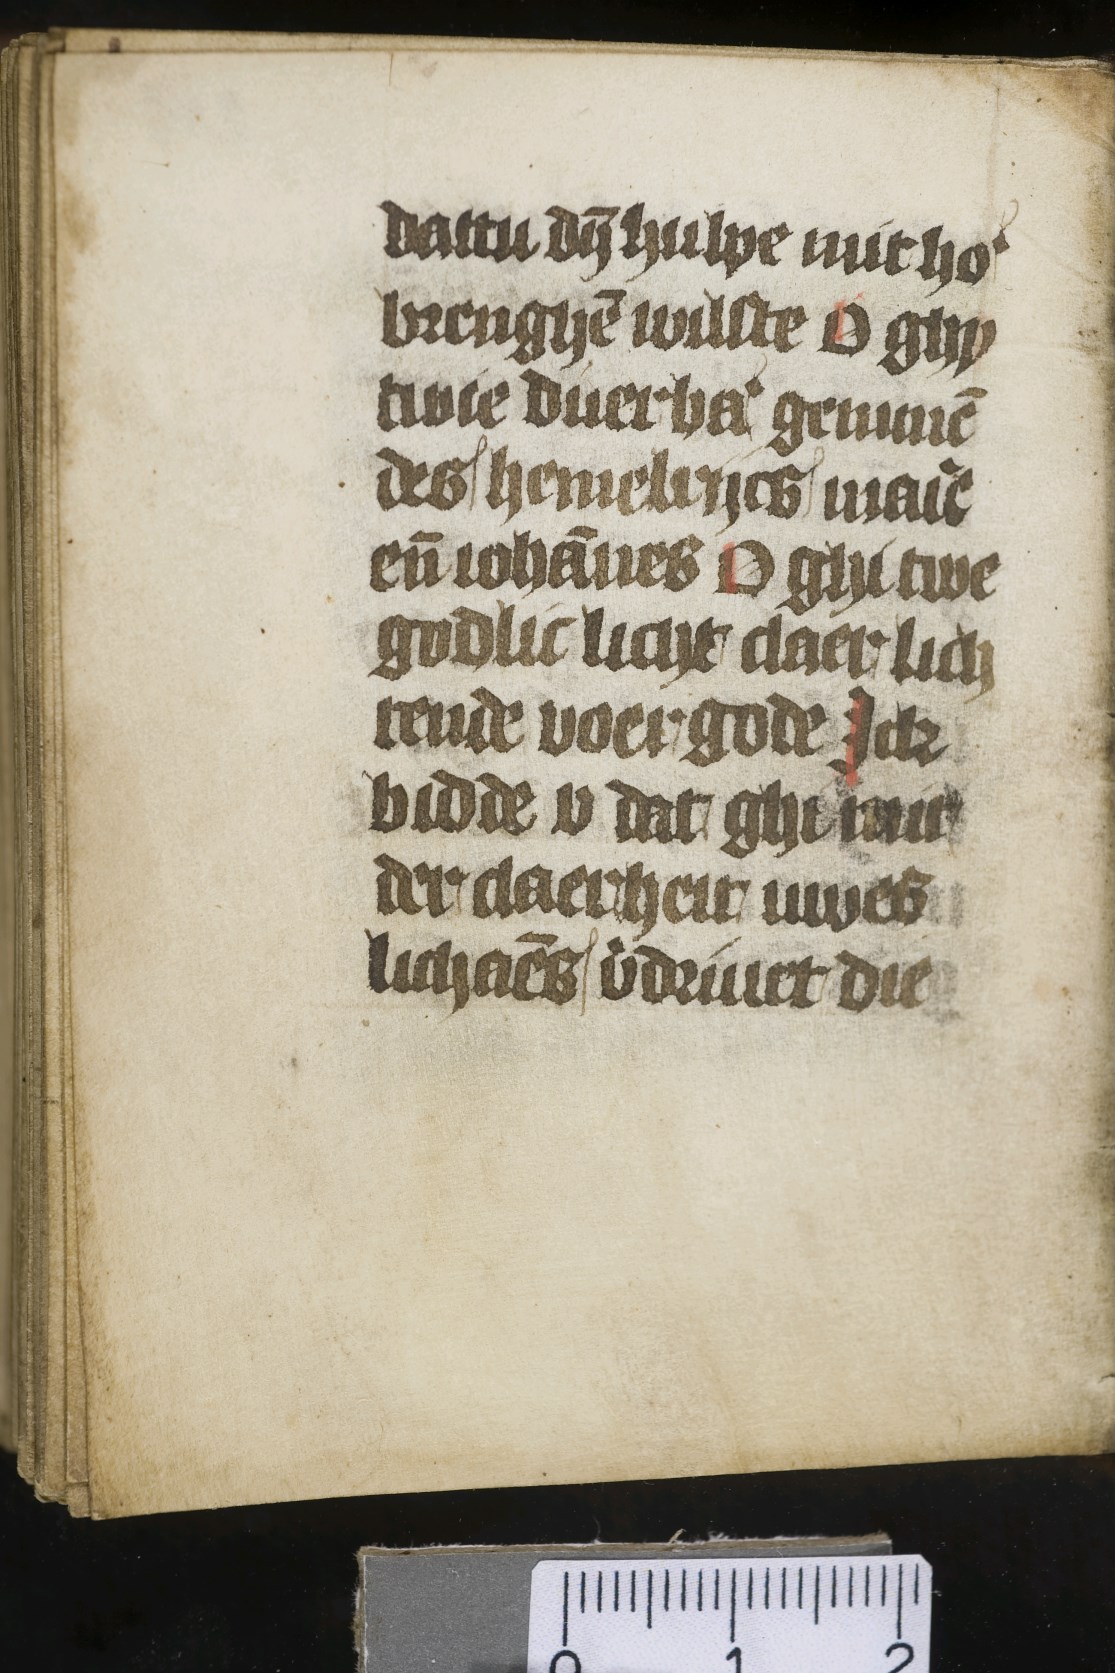 dattu dȳ hulpe mit ho
brenghē wilste O ghy
twie duerba' gemmē
des hemelrijcs maie
en̄ iohānes O ghi twe
godlic licht claer lich
tende voer gode Ick
bidde v dat ghi mit
der claerheit uwes
lichaēs v̄driuet die
0 1 2